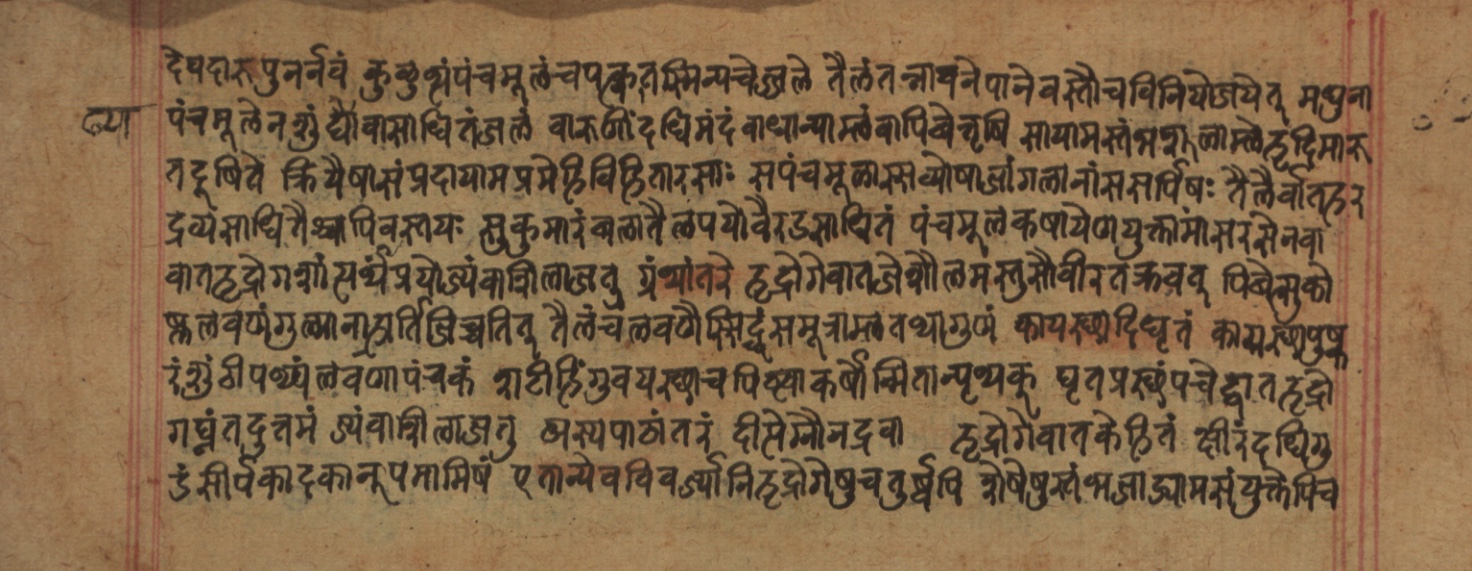 देवदारुपुनर्नवं कुकुष्ठंपंचमूलंचपक्त्कातस्मिन्पचेज्जले तैलंतन्नावनेपानेवस्तौचविनियोजयेत् मधुना
व्या
पंचमूलेनशुंठ्यौवासाधितंजलं वारुणींदधिमंदंवाधान्याम्लंवापिबेत्तृषि सायामस्तंभशूलाम्लेहृदिमारु
तदूषिते क्रियैषासंप्रदायामप्रमेहिविहितारसाः सपंचमूलास्सव्योषाजांगलानांससर्पिषः तैलैर्वातहर
द्रव्यसाधितैश्चापिवस्तयः सुकुमारंबलातैलपयोवैरडसाधितं पंचमूलकषायेणयुक्तामांसरसेनवा
वातहृद्रोगशांत्यर्थंप्रयोज्यंवाशिलाजतु ग्रंथांतरे हृद्रोगेवातजेशौलमस्तुसौवीरतक्रवत् पिबेत्सुखो
ष्णलवणंगुल्मानाहार्तिजिच्चतित् तैलंचलवणौस्सिद्धंसमूत्राम्लतथागुणं कायस्थादिघृतं कायस्थापुष्क
रंशुंठीपथ्यांलवणापंचकं शटींहिंगुवयस्थाचपिष्ट्वाकर्षोन्मितान्पृथक् घृतप्रस्थंपचेद्वातहृद्रो
गघ्नंतदुत्तमं ज्यंवाशिलाजतु अस्यपाठांतरं दीप्तेग्नौनद्रवा हृद्रोगेवातकेहितं क्षीरंदधिगु
डंसीर्पकादकानूपमामिषं एतान्येवविवर्ज्यानिहृद्रोगेषुचतुर्ष्वपि शेषेषुस्तंभजाड्यामसंयुक्तेपिच